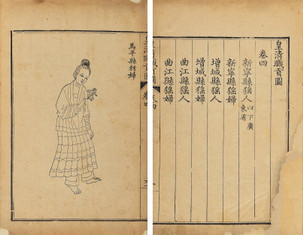 皇清職貢圖
卷四
新寧縣猺人 以下廣東省
新寧縣猺婦
增城縣猺人
增城縣猺婦
曲江縣猺人
曲江縣猺婦
馬平縣婦
卷四